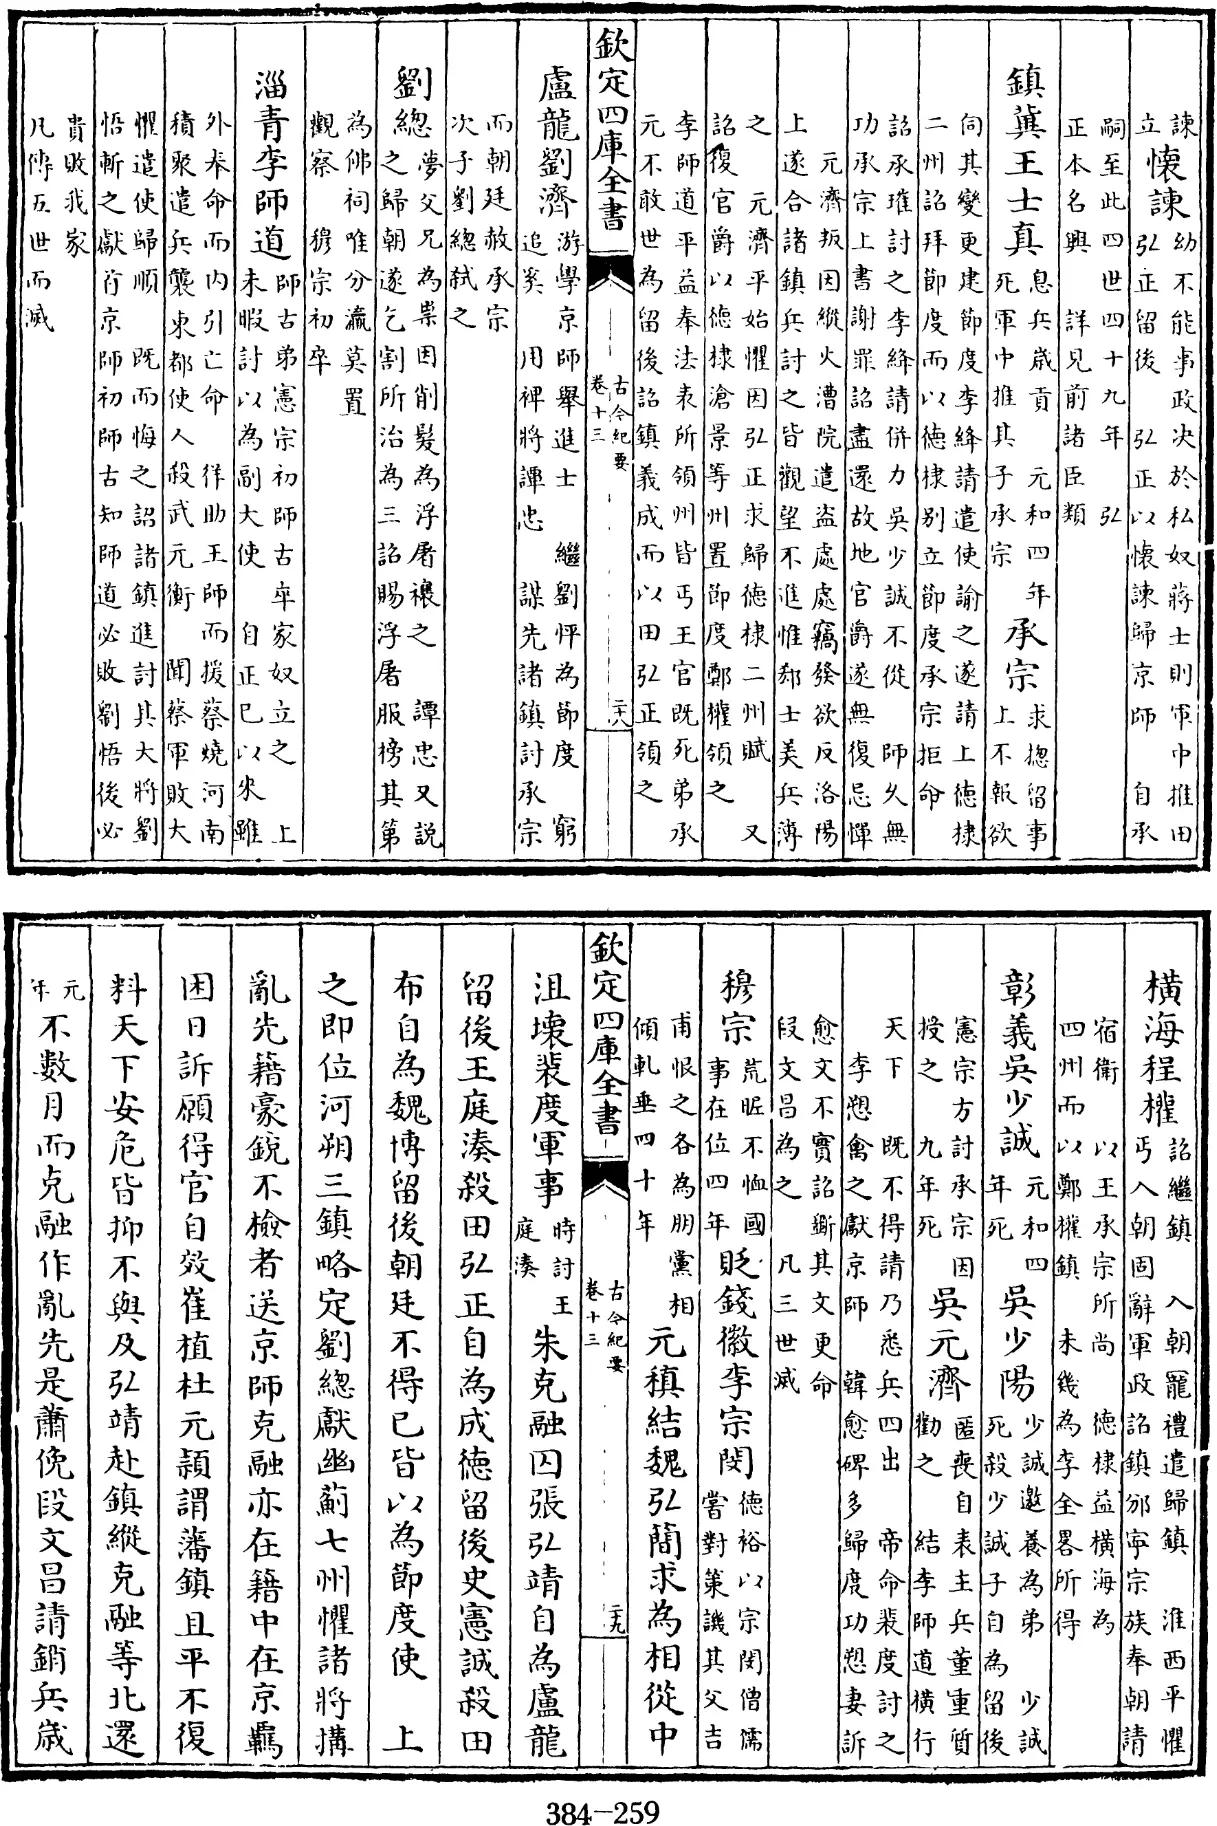 諫
立
懷諫
幼不能事政决於私奴蔣士則軍中推田
弘正留後 弘正以懷諫歸京師 自承
嗣至此四世四十九年 弘
正本名興 詳見前諸臣類
鎮冀王士真
息兵歲貢 元和四年
死軍中推其子承宗
承宗
求摠留事
上不報欲
伺其變更建節度李絳請遣使諭之遂請上德棣
二州詔拜節度而以德棣别立節度承宗拒命
詔承璀討之李絳請併力吳少誠不從 師久無
功承宗上書謝罪詔盡還故地官爵遂無復忌憚
元濟叛因縱火漕院遣盜處處竊發欲反洛陽
上遂合諸鎮兵討之皆觀望不進惟郄士美兵薄
之 元濟平始懼因弘正求歸德棣二州賦 又
詔復官爵以德棣滄景等州置節度鄭權領之
李師道平益奉法表所領州皆丐王官既死弟承
元不敢世為留後詔鎮義成而以田弘正領之
欽定四庫全書
古今紀要
卷十三
二十八
盧龍劉濟
游學京師舉進士 繼劉怦為節度 窮
追奚 用裨將譚忠 謀先諸鎮討承宗
而朝廷赦承宗
次子劉總弒之
劉總
夢父兄為祟因削髮為浮屠禳之 譚忠又説
之歸朝遂乞割所治為三詔賜浮屠服榜其第
為佛祠唯分瀛莫置
觀察 穆宗初卒
淄青李師道
師古弟憲宗初師古卒家奴立之 上
未暇討以為副大使 自正已以來雖
外奉命而内引亡命 佯助王師而援蔡燒河南
積聚遣兵襲東都使人殺武元衡 聞蔡軍敗大
懼遣使歸順 既而悔之詔諸鎮進討其大將劉
悟斬之獻首京師初師古知師道必敗劉悟後必
貴敗我家
凡傳五世而滅
橫海程權
詔繼鎮 入朝寵禮遣歸鎮 淮西平懼
丐入朝固辭軍政詔鎮邠寧宗族奉朝請
宿衛 以王承宗所尚 德棣益橫海為
四州而以鄭權鎮 未幾為李全畧所得
彰義吳少誠
元和四
年死
吳少陽
少誠邀養為弟 少誠
死殺少誠子自為留後
憲宗方討承宗因
授之 九年死
吳元濟
匿喪自表主兵董重質
勸之 結李師道橫行
天下 既不得請乃悉兵四出 帝命裴度討之
李愬禽之獻京師 韓愈碑多歸度功愬妻訴
愈文不實詔斵其文更命
段文昌為之 凡三世滅
穆宗
荒眤不恤國
事在位四年
貶錢徽李宗閔
德裕以宗閔僧儒
嘗對策譏其父吉
甫恨之各為朋黨相
傾軋垂四十年
元稹結魏弘簡求為相從中
欽定四庫全書
古今紀要
卷十三
二十九
沮壞裴度軍事
時討王
庭湊
朱克融囚張弘靖自為盧龍
留後王庭湊殺田弘正自為成德留後史憲誠殺田
布自為魏博留後朝廷不得已皆以為節度使 上
之即位河朔三鎮略定劉總獻幽薊七州懼諸將搆
亂先籍豪銳不檢者送京師克融亦在籍中在京羈
困日訴願得官自效崔植杜元穎謂藩鎮且平不復
料天下安危皆抑不與及弘靖赴鎮縱克融等北還
元
年
不數月而克融作亂先是蕭俛段文昌請銷兵歲
384-259